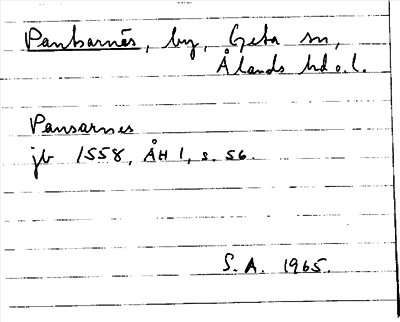 Pantsarnäs, by, Geta sn,
Ålands hd o. l.
Pansarnes
jb 1558, ÅH 1, s. 56.
S. A. 1965.